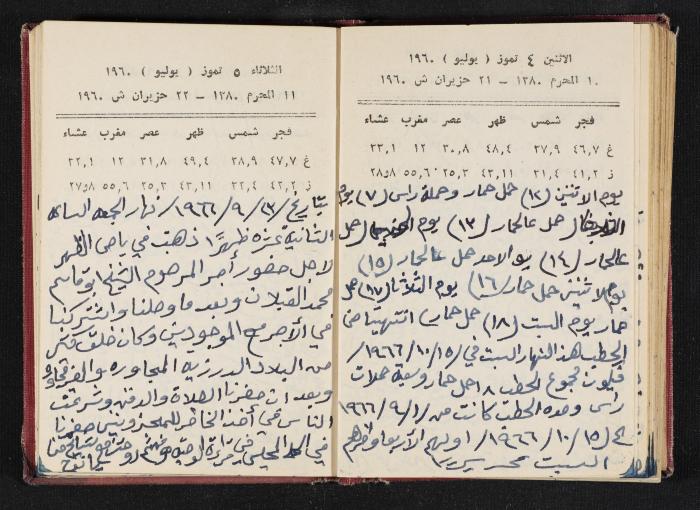 الاثنين ٤ تموز ( يوليو ) ١٩٦٠
١٠ المحرم ١٣٨٠ – ٢١ حزيران ش ١٩٦٠
فجر شمس ظهر عصر مغرب عشاء
غ ٤٦,٧ ٣٧,٩ ٤٨,٤ ٣٠,٨ ١٢ ٣٣,١
ز ٤١,٢ ٣١,٤ ٤٣,١١ ٢٥,٣ ٥٥,٦
يوم الاثنين (١٢) حمل حمار وحملة راس (٧) يوم
حمل عالحمار (١٣) يوم (حمل
عالحمار (١٤) يو الاحد حمل عالحمار (١٥)
يوم لاتنين حمل حمار (١٦) يوم الثلاثا (١٧) حمل
حمار يوم السبت (١٨) حمل حمار انتهينا من
الحطب هذ النهار السبت في /١٥/ ١٠/ ١٩٦٦/
فيكون مجموع الحطب ١٨ حمل حمار وسبعة حملات
راس ومدة الحطب كانت من /١/ ٩/ ١٩٦٦
/١٥/ ١٠/ ١٩٦٦/ اولهم الاربعا واخرهم
السبت
الثلاثاء ٥ تموز ( يوليو ) ١٩٦٠
١١ المحرم ١٣٨٠ – ٢٢ حزيران ش ١٩٦٠
فجر شمس ظهر عصر مغرب عشاء
غ ٤٧,٧ ٣٨,٩ ٤٩,٤ ٣١,٨ ١٢ ٣٢,١
ز ٤٢,٢ ٤٣,١١ ٢٥,٣ ٥٥,٦ ٢٧,٨
بتاريخ /٢٣/ ٩/ ١٩٦٦/ نهار الجمعه الساعه
الثانية عشره ظهرًا ذهبت في باص الظهر
لاجل حضور أجر المرحوم الشيخ ابو قاسم
محمد القبلان وبعد ما وصلنا واشتركنا
في الأجر مع الموجودين وكان خلق كثير
من البلاد الدرزية المجاوره
وبعد ان حضرنا الصلاة والدفن وشرعت
الناس في أخذ الخاطر
في المجلس في قرية